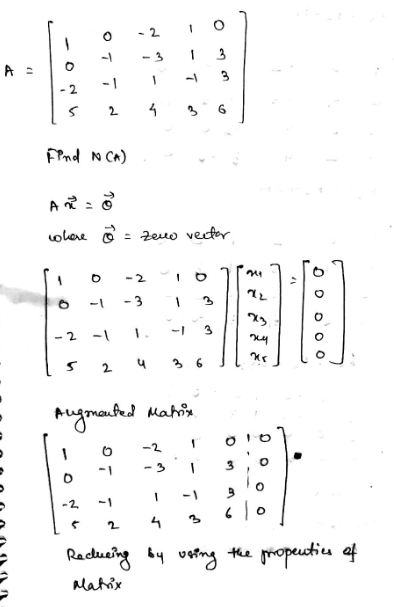 A = [ 1 0 -2 1 0
0 -1 -3 1 3
-2 -1 1 -1 3
5 2 4 3 6 ]
Find N(A)
A x⃗ = 0⃗
where 0⃗ = zero vector
[ 1 0 -2 1 0 ] [ x1 ] = [ 0 ]
[ 0 -1 -3 1 3 ] [ x2 ] [ 0 ]
[ -2 -1 1. -1 3 ] [ x3 ] [ 0 ]
[ 5 2 4 3 6 ] [ x4 ] [ 0 ]
[ x5 ] [ 0 ]
Augmented Matrix
[ 1 0 -2 1 0 | 0
0 -1 -3 1 3 | 0
-2 -1 1 -1 3 | 0
5 2 4 3 6 | 0 ]
Reducing by using the properties of
Matrix